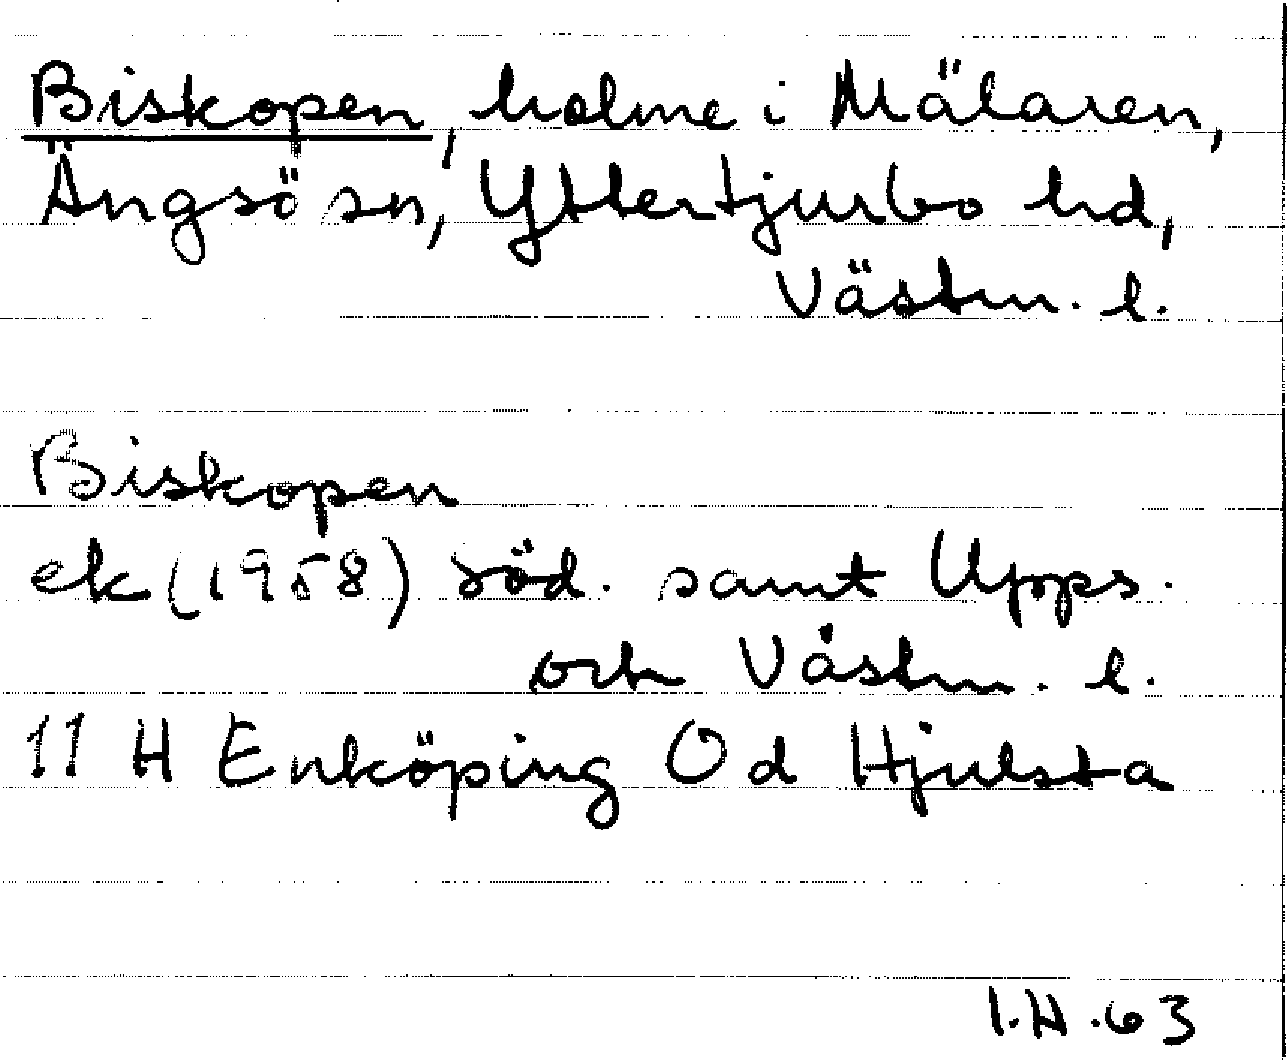 Biskopen, holme i Mälaren,
Ängsö sn, Yttertjurbo hd,
Västm. l.
Biskopen
ek (1958) söd. samt Upps.
och Västm. l.
11 H Enköping Od Hjulsta
I.H.63